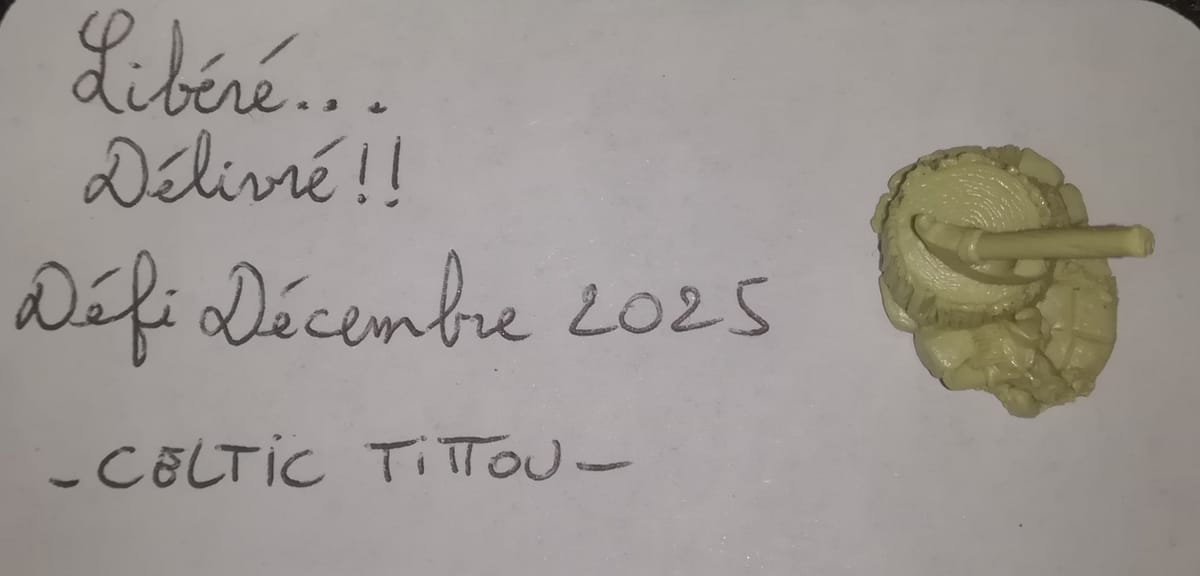 Libéré...
Délivré!!
Défi Décembre 2025
- CELTiC TiTTOU -